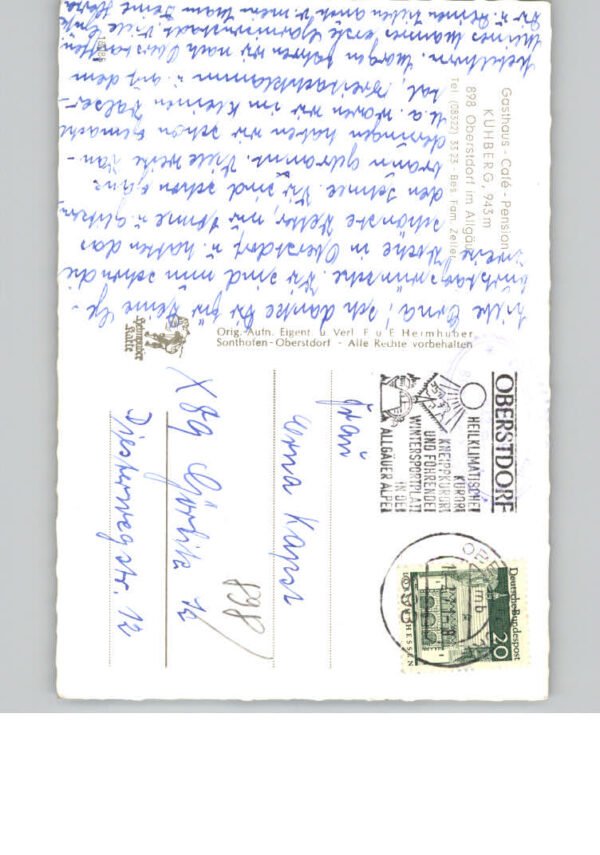 Gasthaus - Café - Pension
KÜHBERG, 943m
898 Oberstdorf im Allgäu
Tel. (08322) 3323 - Bes. Fam. Zeller
Liebe Erna! Ich danke Dir für Deine Ge-
burtstagswünsche. Wir sind nun schon die
zweite Woche in Oberstdorf u. hatten das
schönste Wetter, nur Sonne u. glitzern-
den Schnee. Wir sind schon ganz
braun gebrannt. Viele weite Wan-
derungen haben wir schon gemacht
u. a. waren wir im kleinen Walser-
tal, Breitachklamm u. auf dem
Nebelhorn. Morgen fahren wir nach
Meines Mannes erste Garnisonstadt. Viele Grüße
Dir u. Deinen Lieben auch v. mein Mann Deine
Orig.-Aufn. Eigent. u. Verl. F. u. E. Heimhuber
Sonthofen-Oberstdorf - Alle Rechte vorbehalten
Heimhuber
Karte
OBERSTDORF
HEILKLIMATISCHER
KURORT
KNEIPPKURORT
UND FÜHRENDER
WINTERSPORTPLATZ
IN DEN
ALLGÄUER ALPEN
Deutsche Bundespost
20
HESSEN
Frau
Erna Kapst
X 89 Görlitz
898
Diesterwegstr. 12